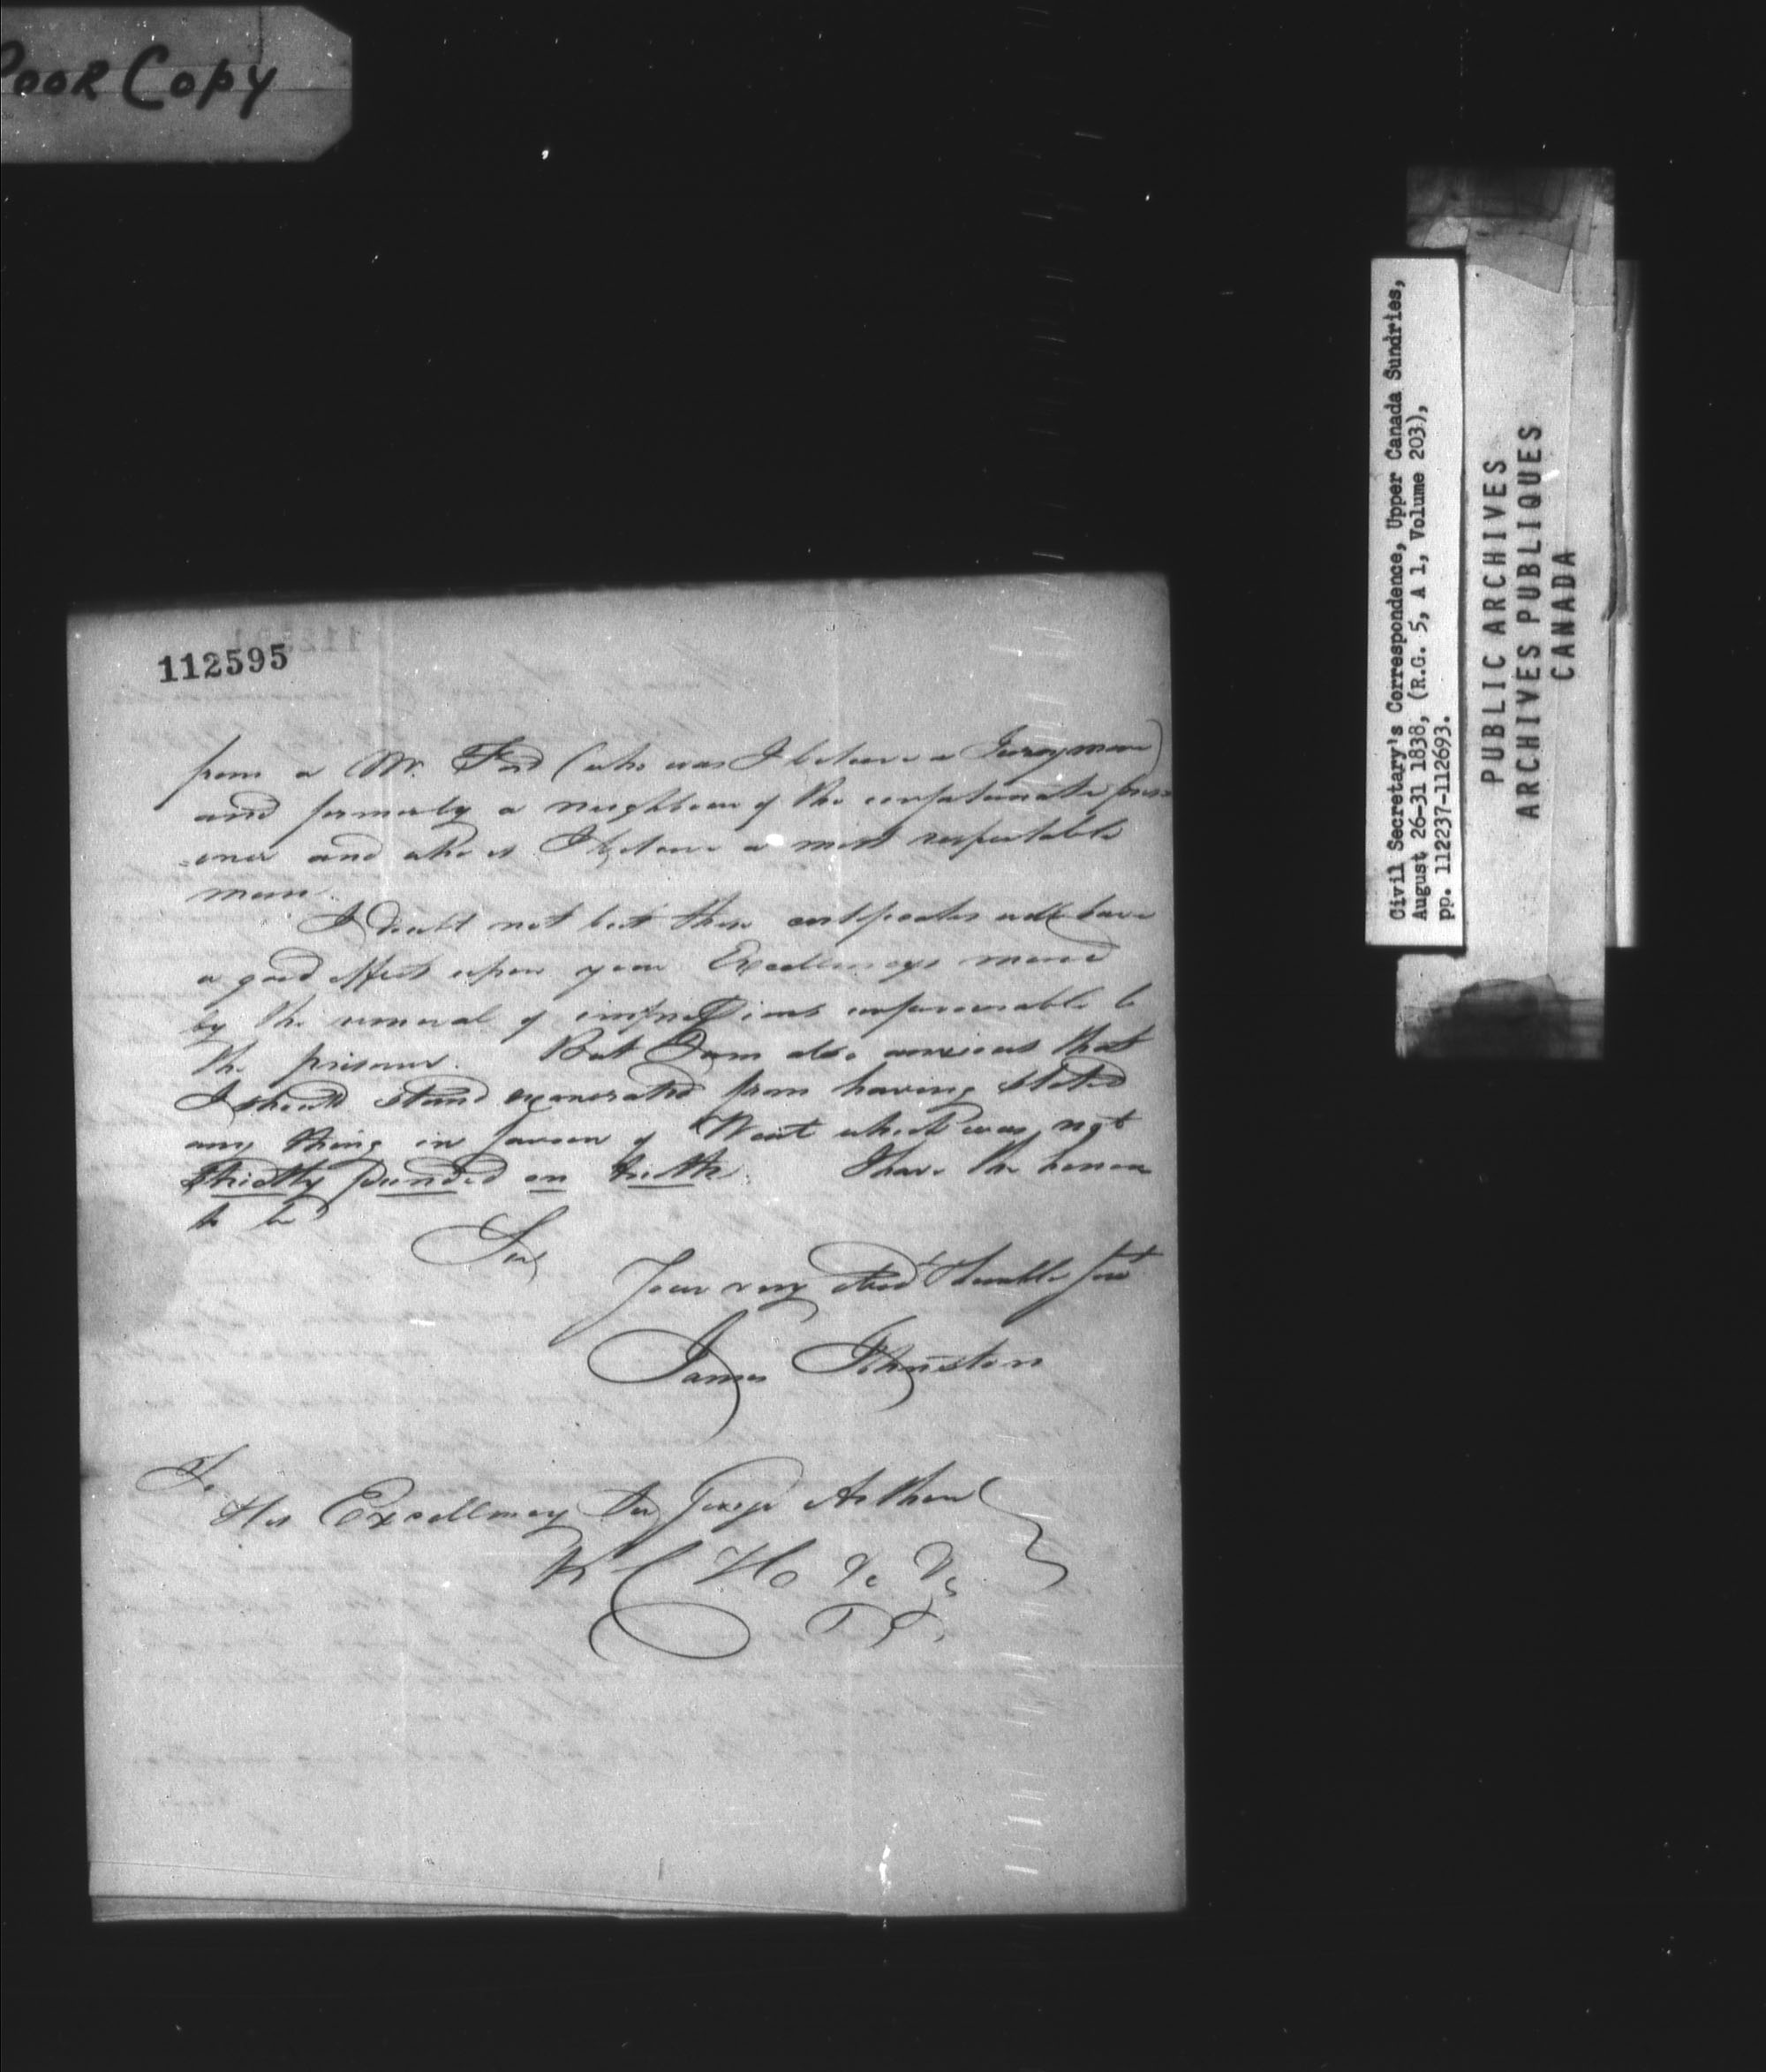 Poor Copy
112595
from a Mr. Ford (who was I believe a Juryman)
and formerly a neighbour of the unfortunate pris
=oner and who is I believe a most respectable
man.
I doubt not but these certificates will have
a good effect upon your Excellencys mind
by the removal of impressions unfavorable to
the prisoner. But I am also anxious that
I should stand exonerated from having stated
any thing in favour of Wait which was not
strictly founded on truth. I have the honor
to be
Sir
Your very obed humble Servt
James Johnston
To
His Excellency Sir George Arthur
K C H &c &c
Civil Secretary's Correspondence, Upper Canada Sundries,
August 26-31 1838, (R.G. 5, A 1, Volume 203),
pp. 112237-112693.
PUBLIC ARCHIVES
ARCHIVES PUBLIQUES
CANADA